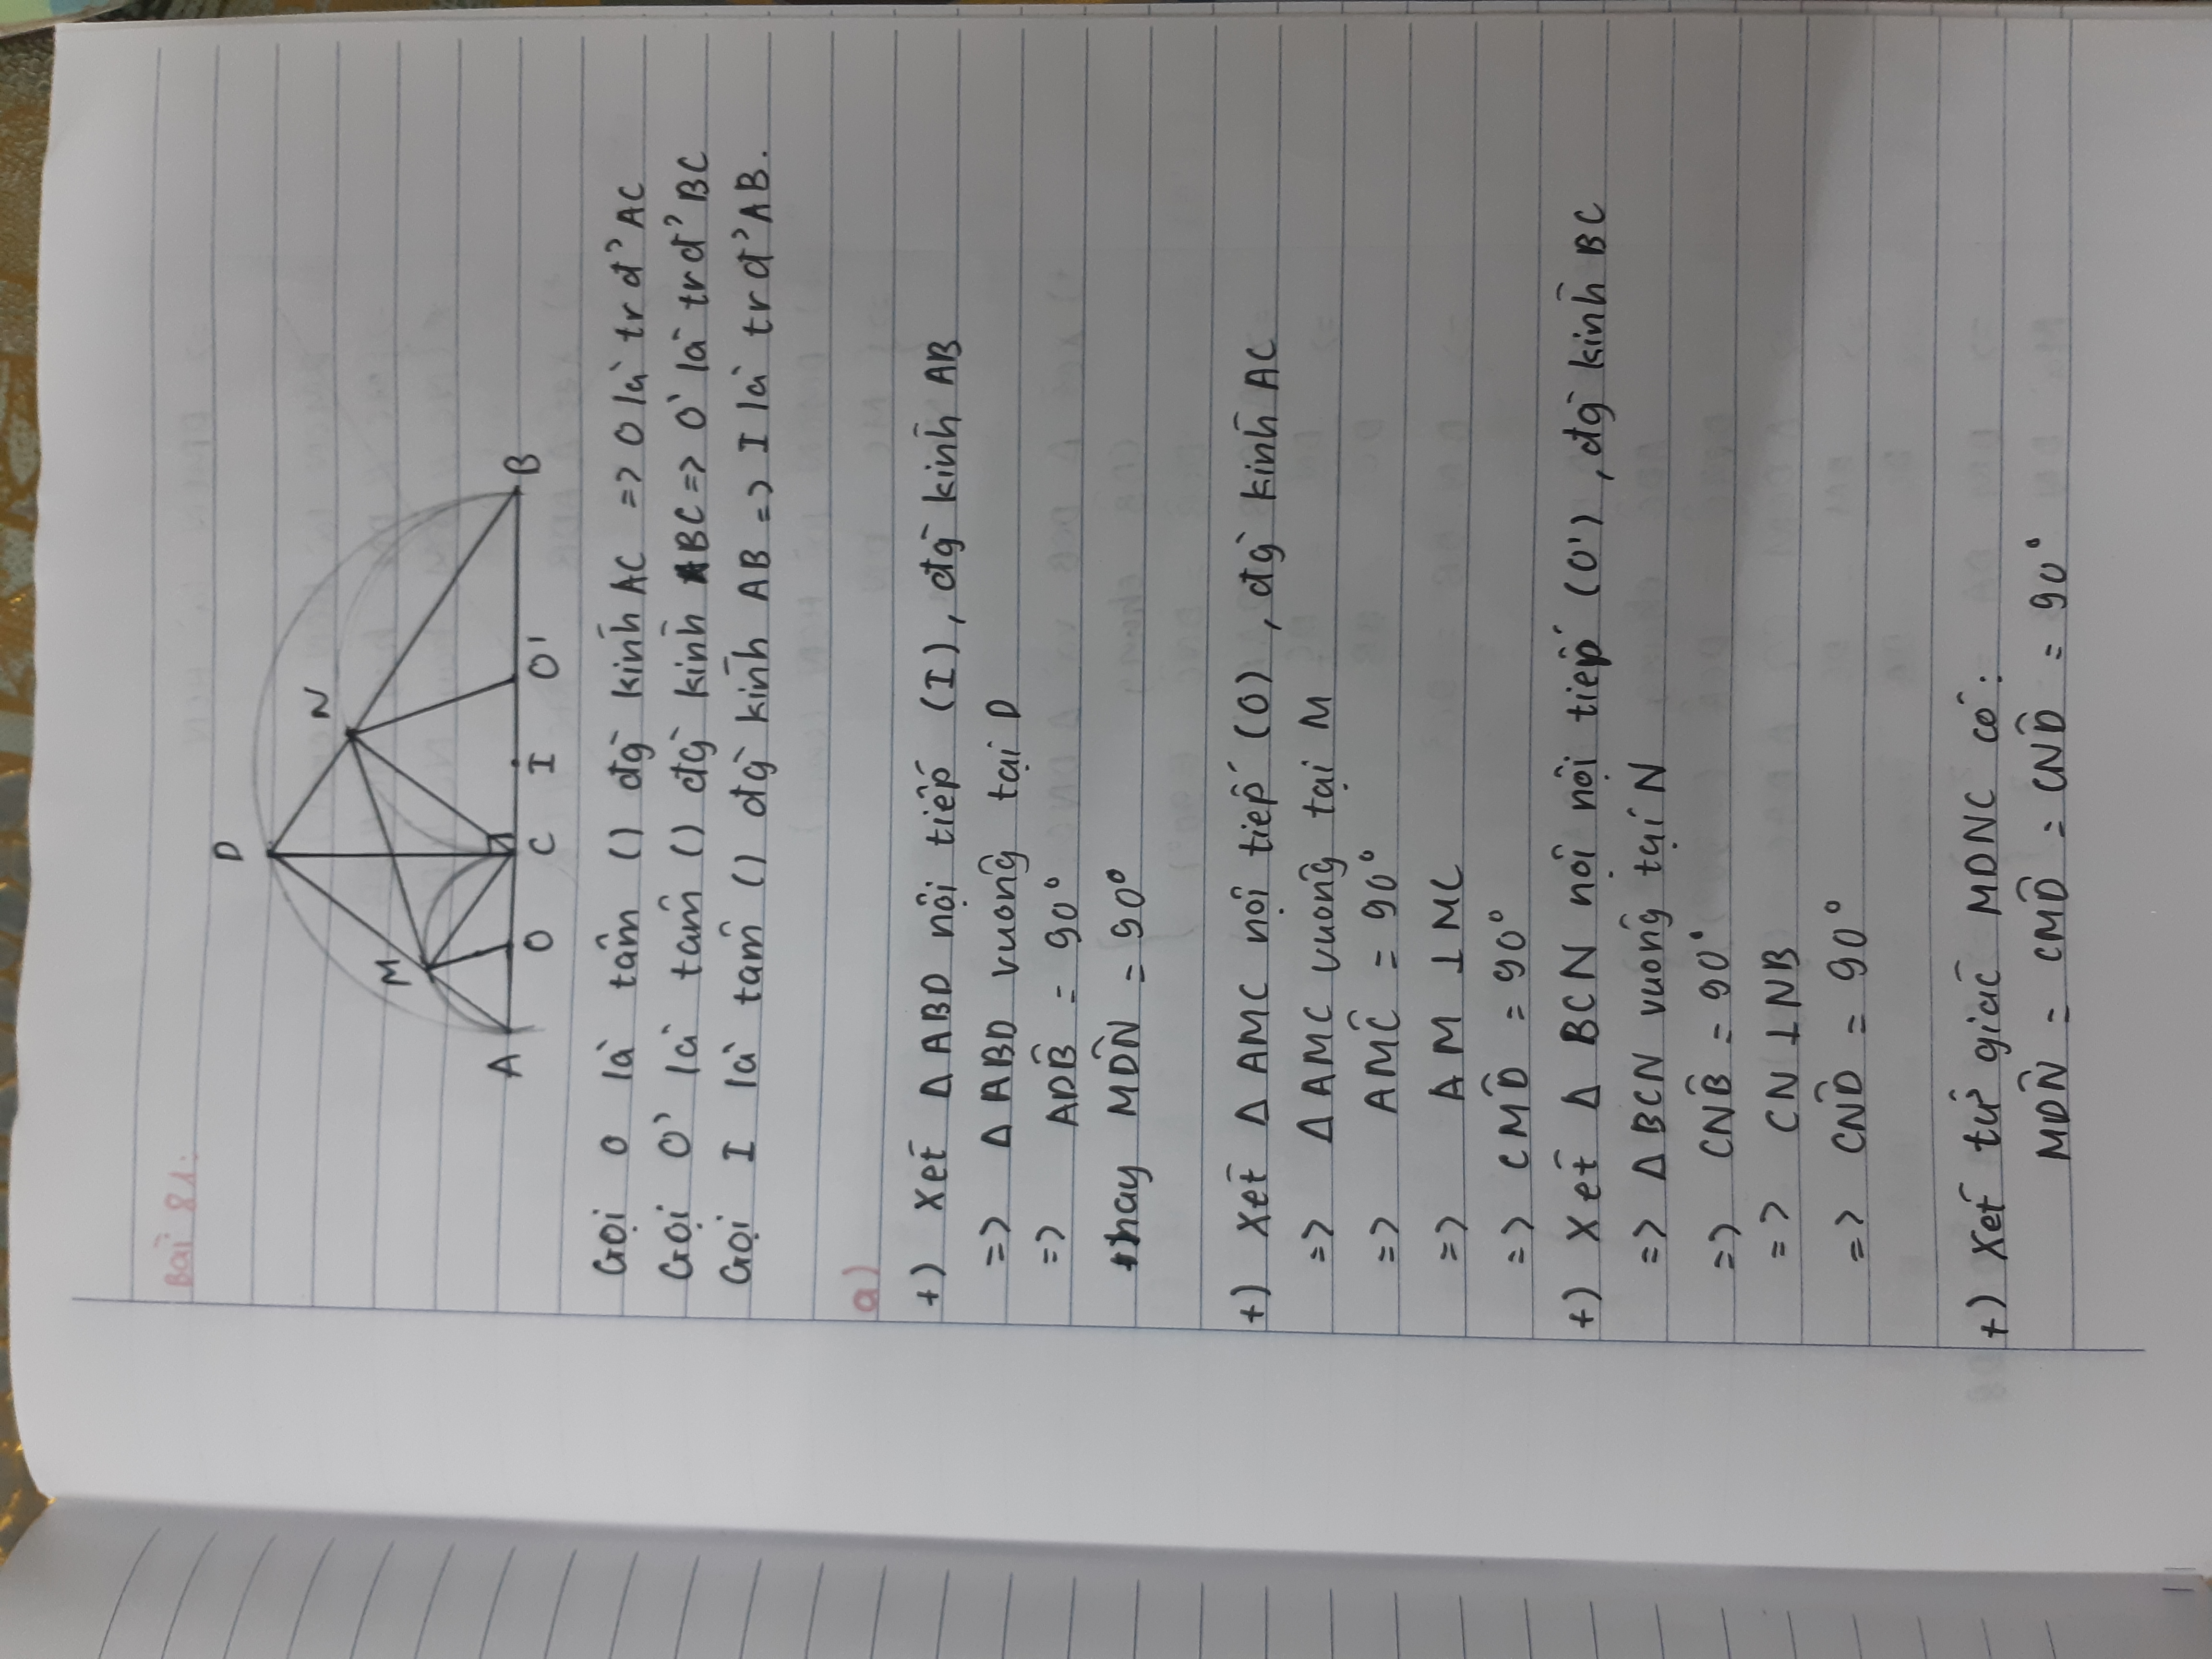 Bài 81:
D
N
M
A
O
C
I
O'
B
Gọi O là tâm () đg kính AC => O là tr đ' AC
Gọi O' là tâm () đg kính BC => O' là tr đ' BC
Gọi I là tâm () đg kính AB => I là tr đ' AB.
a)
+) Xét Δ ABD nội tiếp (I), đg kính AB
=> Δ ABD vuông tại D
=> ADB̂ = 90°
hay MDN̂ = 90°
+) Xét Δ AMC nội tiếp (O), đg kính AC
=> Δ AMC vuông tại M
=> AMĈ = 90°
=> AM ⊥ MC
=> CMD̂ = 90°
+) Xét Δ BCN nội nội tiếp (O'), đg kính BC
=> Δ BCN vuông tại N
=> CNB̂ = 90°
=> CN ⊥ NB
=> CND̂ = 90°
+) Xét tứ giác MDNC có:
MDN̂ = CMD̂ = CND̂ = 90°